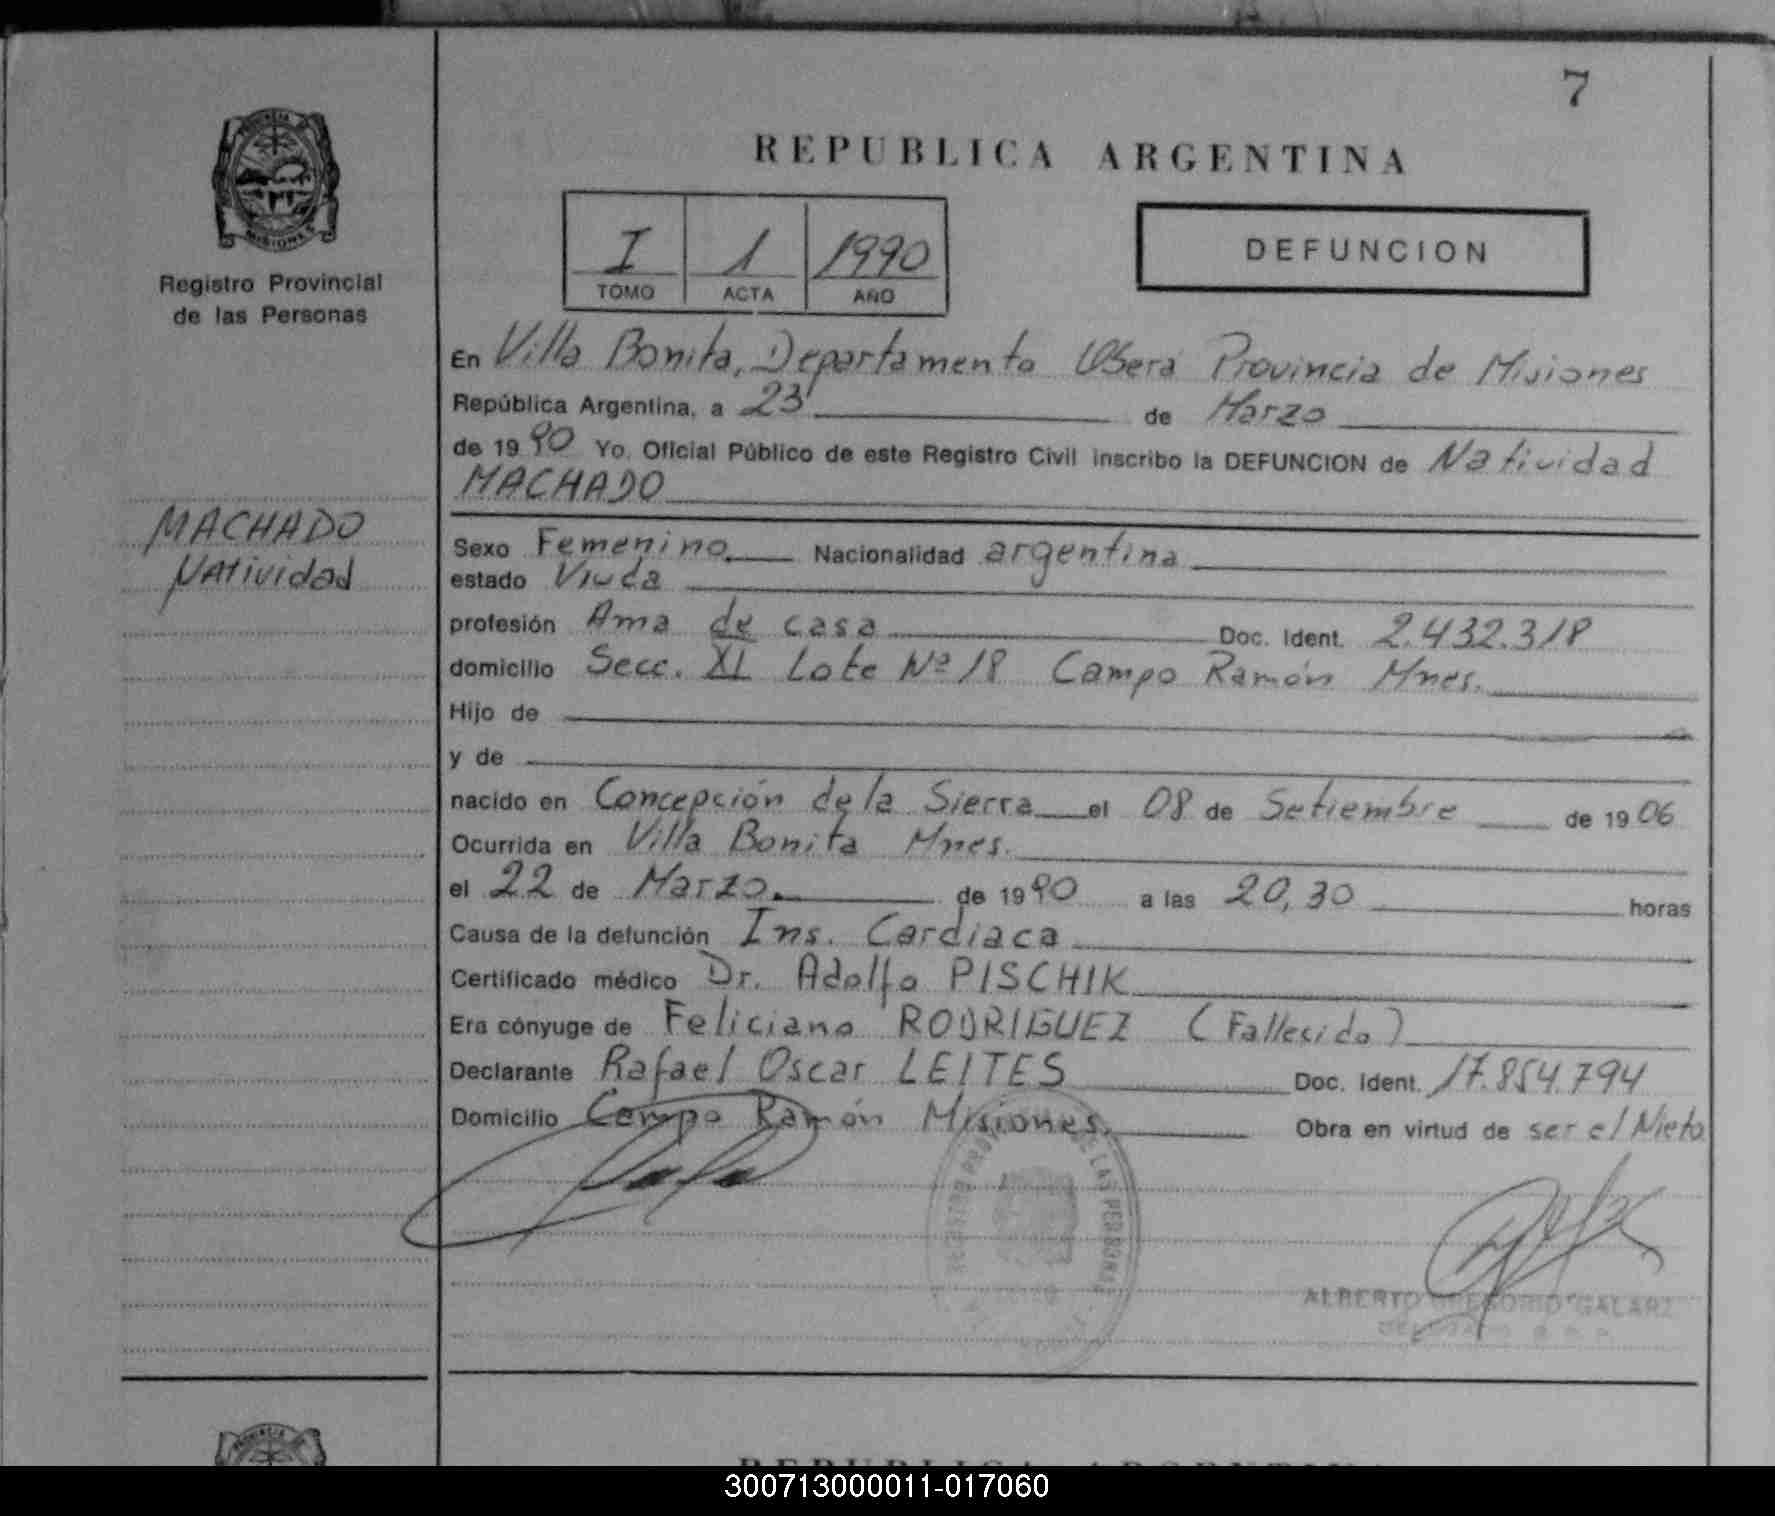 7
PROVINCIA DE
MISIONES
Registro Provincial
de las Personas
MACHADO
Natividad
REPUBLICA ARGENTINA
I 1 1990
TOMO ACTA AÑO
DEFUNCION
En Villa Bonita, Departamento Oberá Provincia de Misiones
República Argentina, a 23 de Marzo
de 1990 Yo, Oficial Público de este Registro Civil inscribo la DEFUNCION de Natividad
MACHADO
Sexo Femenino Nacionalidad argentina
estado Viuda
profesión Ama de casa Doc. Ident. 2.432.318
domicilio Secc. XI Lote Nº 18 Campo Ramón Mnes.
Hijo de
y de
nacido en Concepción de la Sierra el 08 de Setiembre de 1906
Ocurrida en Villa Bonita Mnes.
el 22 de Marzo. de 1990 a las 20,30 horas
Causa de la defunción Ins. Cardiaca
Certificado médico Dr. Adolfo PISCHIK
Era cónyuge de Feliciano RODRIGUEZ (Fallecido)
Declarante Rafael Oscar LEITES Doc. Ident. 17.854.794
Domicilio Campo Ramón Misiones. Obra en virtud de ser el Nieto
DE LAS PERSONAS
ALBERTO GREGORIO GALARZ
REPUBLICA ARGENTINA
300713000011-017060